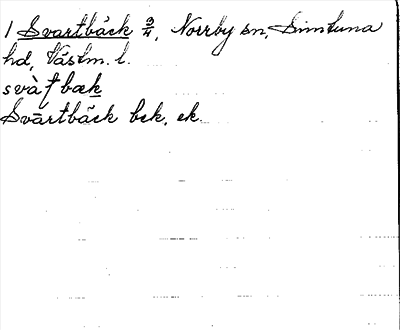 1 Svartbäck 3/4, Norrby sn, Simtuna
hd, Västm. l.
svàƭ bæk
Svartbäck bek, ek.